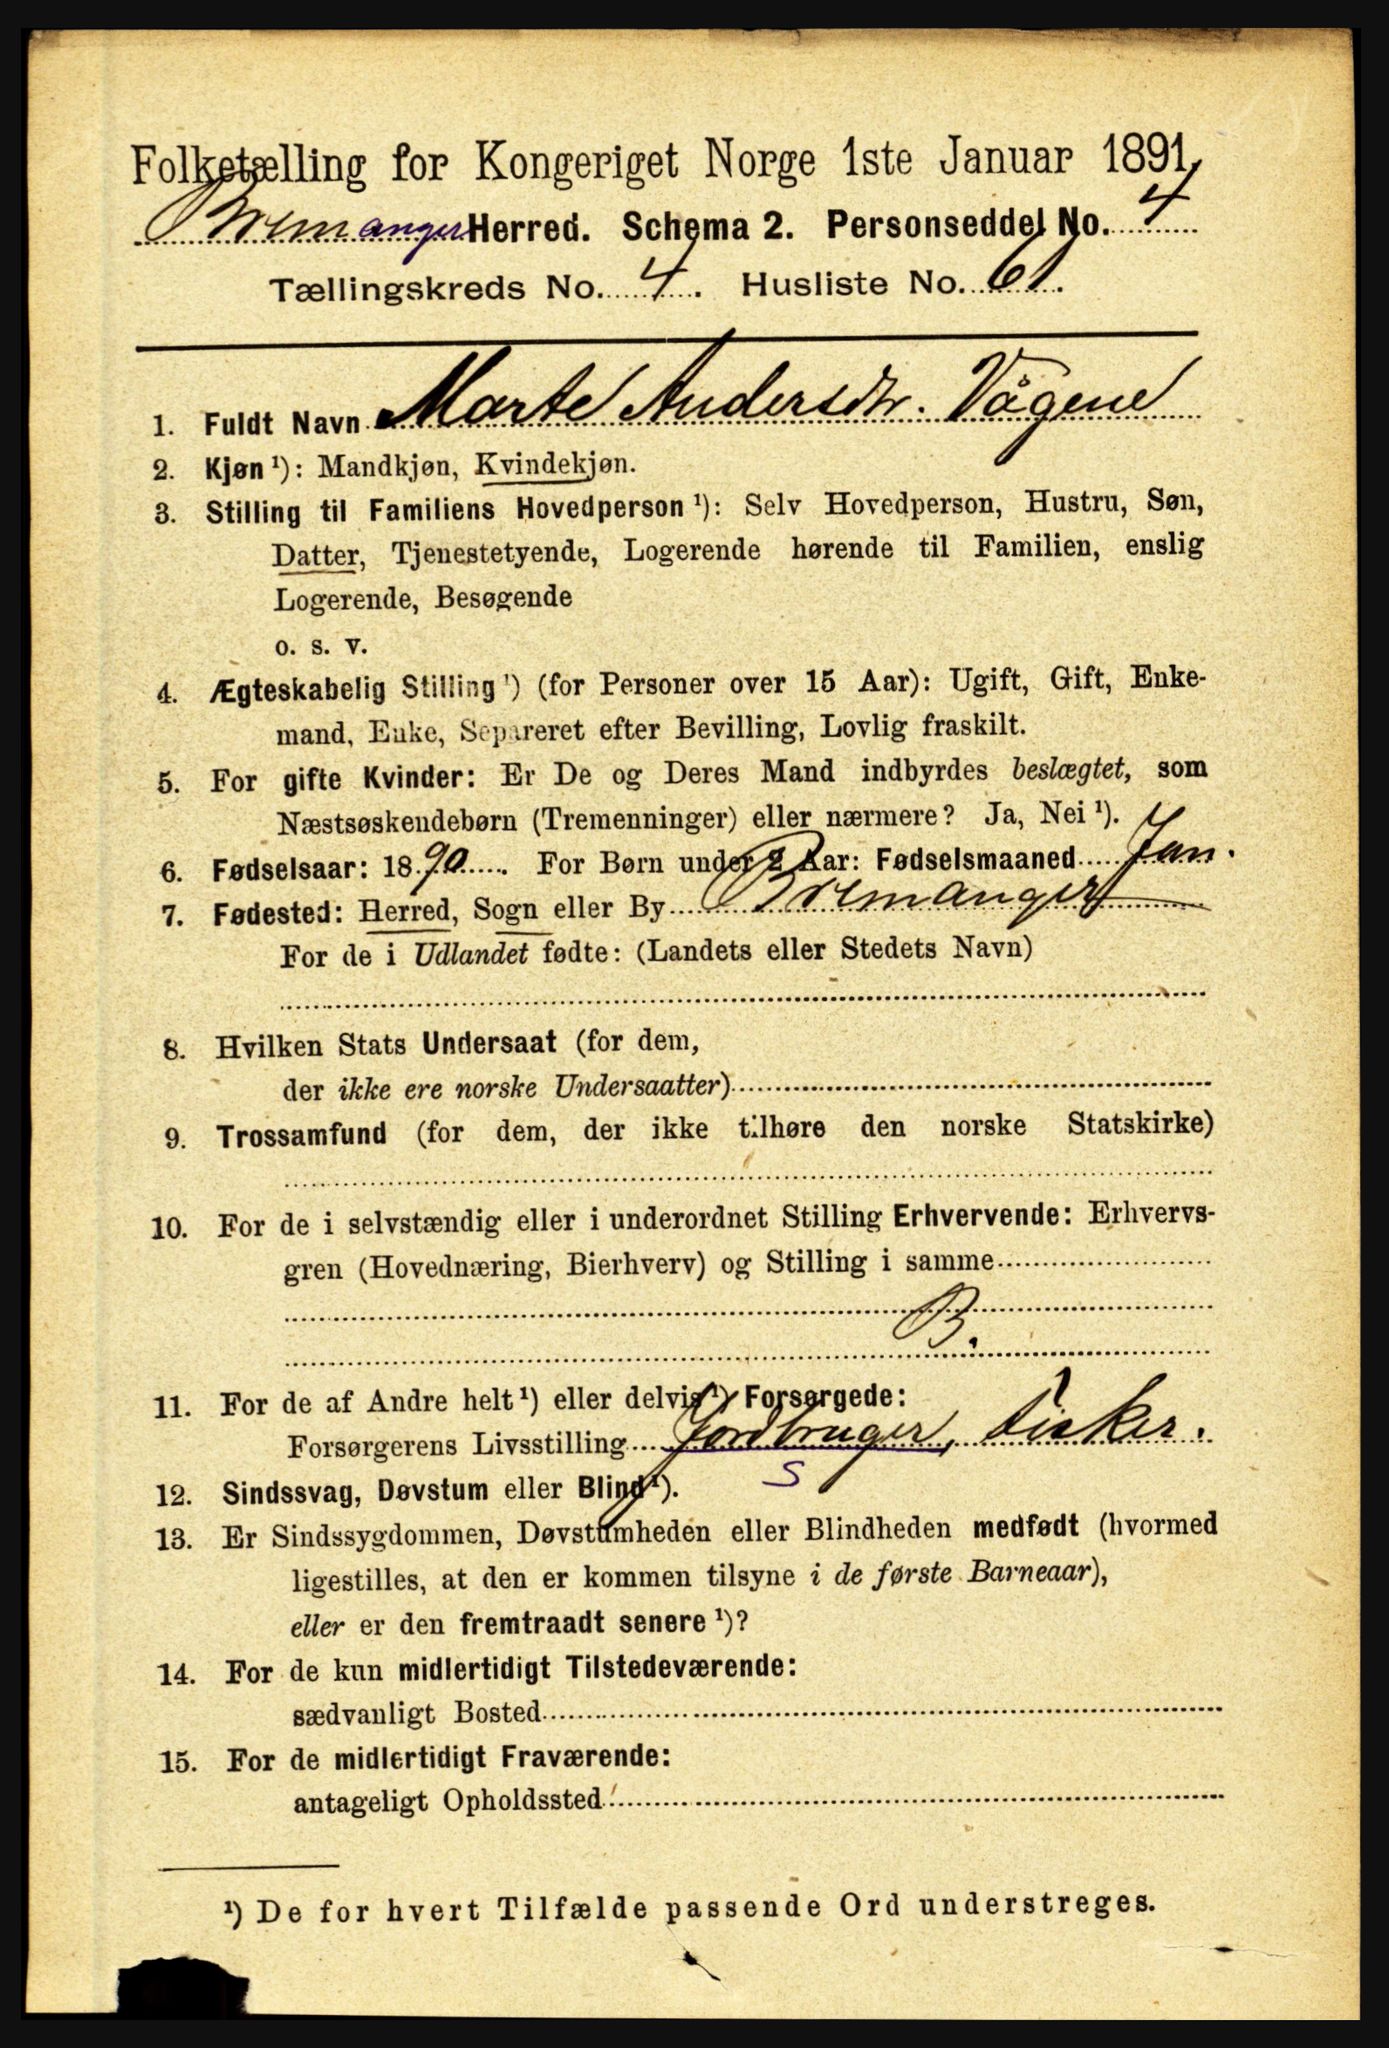 Folketælling for Kongeriget Norge 1ste Januar 1891.
Bremanger Herred. Schema 2. Personseddel No. 4
Tællingskreds No. 4. Husliste No. 61.
1. Fuldt Navn Marte Andersdtr. Vågene
2. Kjøn ¹): Mandkjøn, Kvindekjøn.
3. Stilling til Familiens Hovedperson ¹): Selv Hovedperson, Hustru, Søn,
Datter, Tjenestetyende, Logerende hørende til Familien, enslig
Logerende, Besøgende
o. s. v.
4. Ægteskabelig Stilling ¹) (for Personer over 15 Aar): Ugift, Gift, Enke-
mand, Enke, Separeret efter Bevilling, Lovlig fraskilt.
5. For gifte Kvinder: Er De og Deres Mand indbyrdes beslægtet, som
Næstsøskendebørn (Tremenninger) eller nærmere? Ja, Nei ¹).
6. Fødselsaar: 1890. For Børn under 2 Aar: Fødselsmaaned Jan.
7. Fødested: Herred, Sogn eller By Bremanger
For de i Udlandet fødte: (Landets eller Stedets Navn)
8. Hvilken Stats Undersaat (for dem,
der ikke ere norske Undersaatter)
9. Trossamfund (for dem, der ikke tilhøre den norske Statskirke)
10. For de i selvstændig eller i underordnet Stilling Erhvervende: Erhvervs-
gren (Hovednæring, Bierhverv) og Stilling i samme
B.
11. For de af Andre helt ¹) eller delvis ¹) Forsørgede:
Forsørgerens Livsstilling Jordbruger, fisker.
S
12. Sindssvag, Døvstum eller Blind ¹).
13. Er Sindssygdommen, Døvstumheden eller Blindheden medfødt (hvormed
ligestilles, at den er kommen tilsyne i de første Barneaar),
eller er den fremtraadt senere ¹)?
14. For de kun midlertidigt Tilstedeværende:
sædvanligt Bosted
15. For de midlertidigt Fraværende:
antageligt Opholdssted
¹) De for hvert Tilfælde passende Ord understreges.